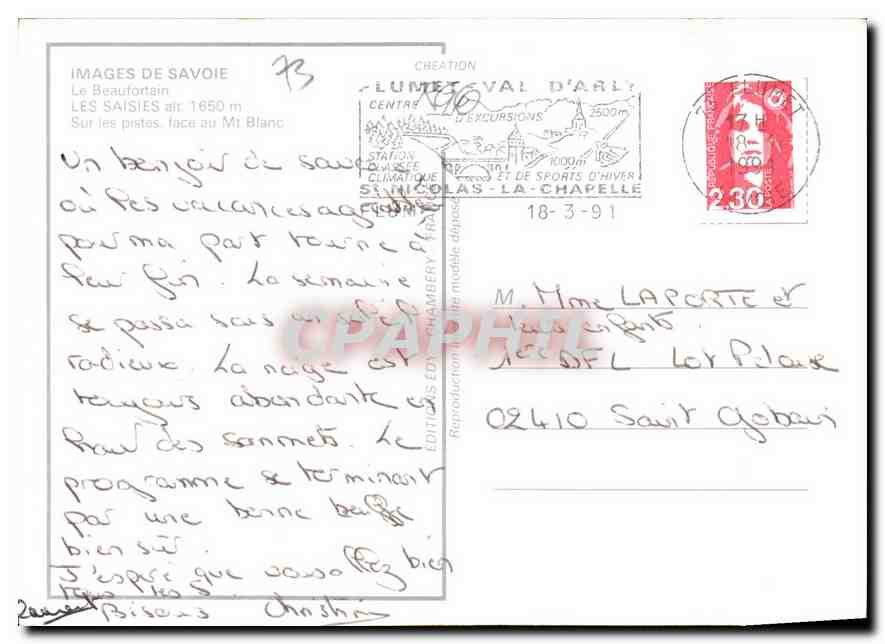 IMAGES DE SAVOIE
Le Beaufortain
LES SAISIES alt. 1650 m
Sur les pistes, face au Mt Blanc
73
Un bonjour de Savoie
où les vacances
pour ma part tourne à
leur fin. La semaine
se passa sous un soleil
radieux. La neige est
toujours abondante en
haut des sommets. Le
programme se terminant
par une bonne bouffe
bien sûr.
J'espère que vous allez bien
tous les 5.
Bisous Christian
Laurent
CREATION
FLUMET-VAL D'ARLY
CENTRE
D'EXCURSIONS
2500m
STATION
CLASSEE
CLIMATIQUE
1000m
ET DE SPORTS D'HIVER
ST NICOLAS-LA-CHAPELLE
18-3-91
FLUMET
17 H
18-3
1991
REPUBLIQUE FRANÇAISE
LA POSTE
2,30
EDITIONS EDY - CHAMBERY - FRANCE
Reproduction modèle déposé
CPAPHIL
M. Mme LAPORTE et
leurs enfants.
DFL Lot Pelouse
02410 Saint Gobain